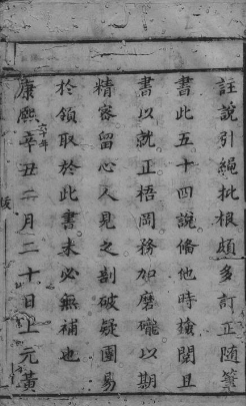 註說引繩批根頗多訂正隨籤
書此五十四說備他時檢閱且
書以就正梧岡務加磨礲以期
精密留心人見之剖破疑團易
於領取於此書未必無補也
康熙辛丑二月二十日上元黃
六十年